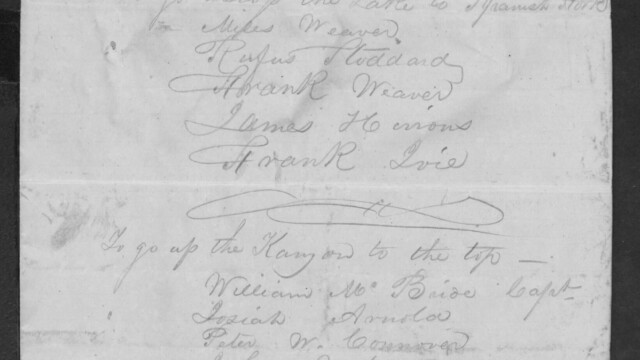 go across the Lake to Spanish Fork
Miles Weaver
Rufus Stoddard
Frank Weaver
James Herrons
Frank Ivie
To go up the Kanyon to the top —
William Mc Bride Capt
Josiah Arnold
Peter W. Connover